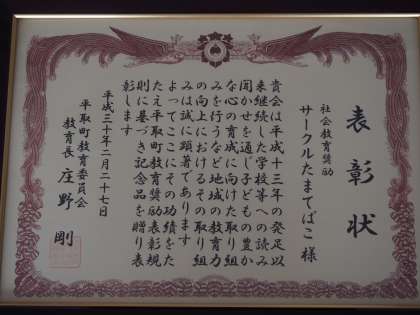 表彰状
社会教育奨励
サークルたまてばこ様
貴会は平成十三年の発足以
来継続した学校等への読み
聞かせを通じ子どもの豊か
な心の育成に向けた取り組
みを行うなど地域の教育力
の向上におけるその取り組
みは誠に顕著であります
よってここにその功績をた
たえ平取町教育奨励表彰規
則に基づき記念品を贈り表
彰します
平成三十年二月二十七日
平取町教育委員会
教育長 庄野 剛